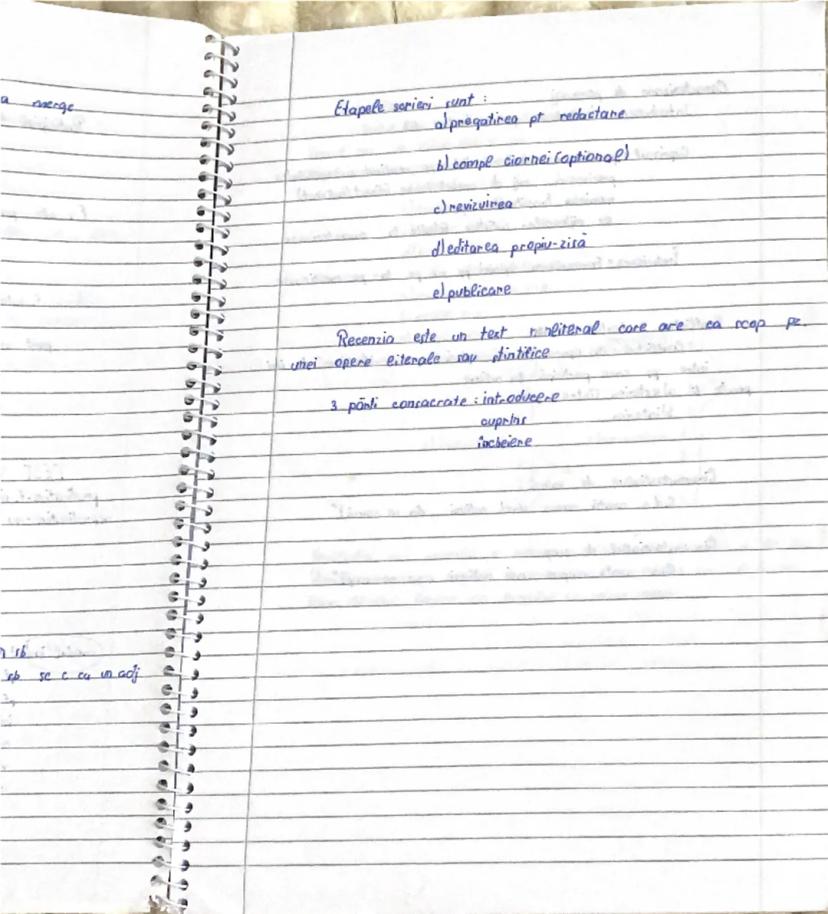 a merge
n sb
sb se c cu un adj
Etapele scrieri sunt :
a) pregatirea pt redactare
b) compl ciornei (optional)
c) revizuirea
d) editarea propiu-zisă
e) publicare
Recenzia este un text nonliteral care are ca scop pz.
unei opere literale sau stintifice
3 părti consacrate : introducere
cuprins
încheiere